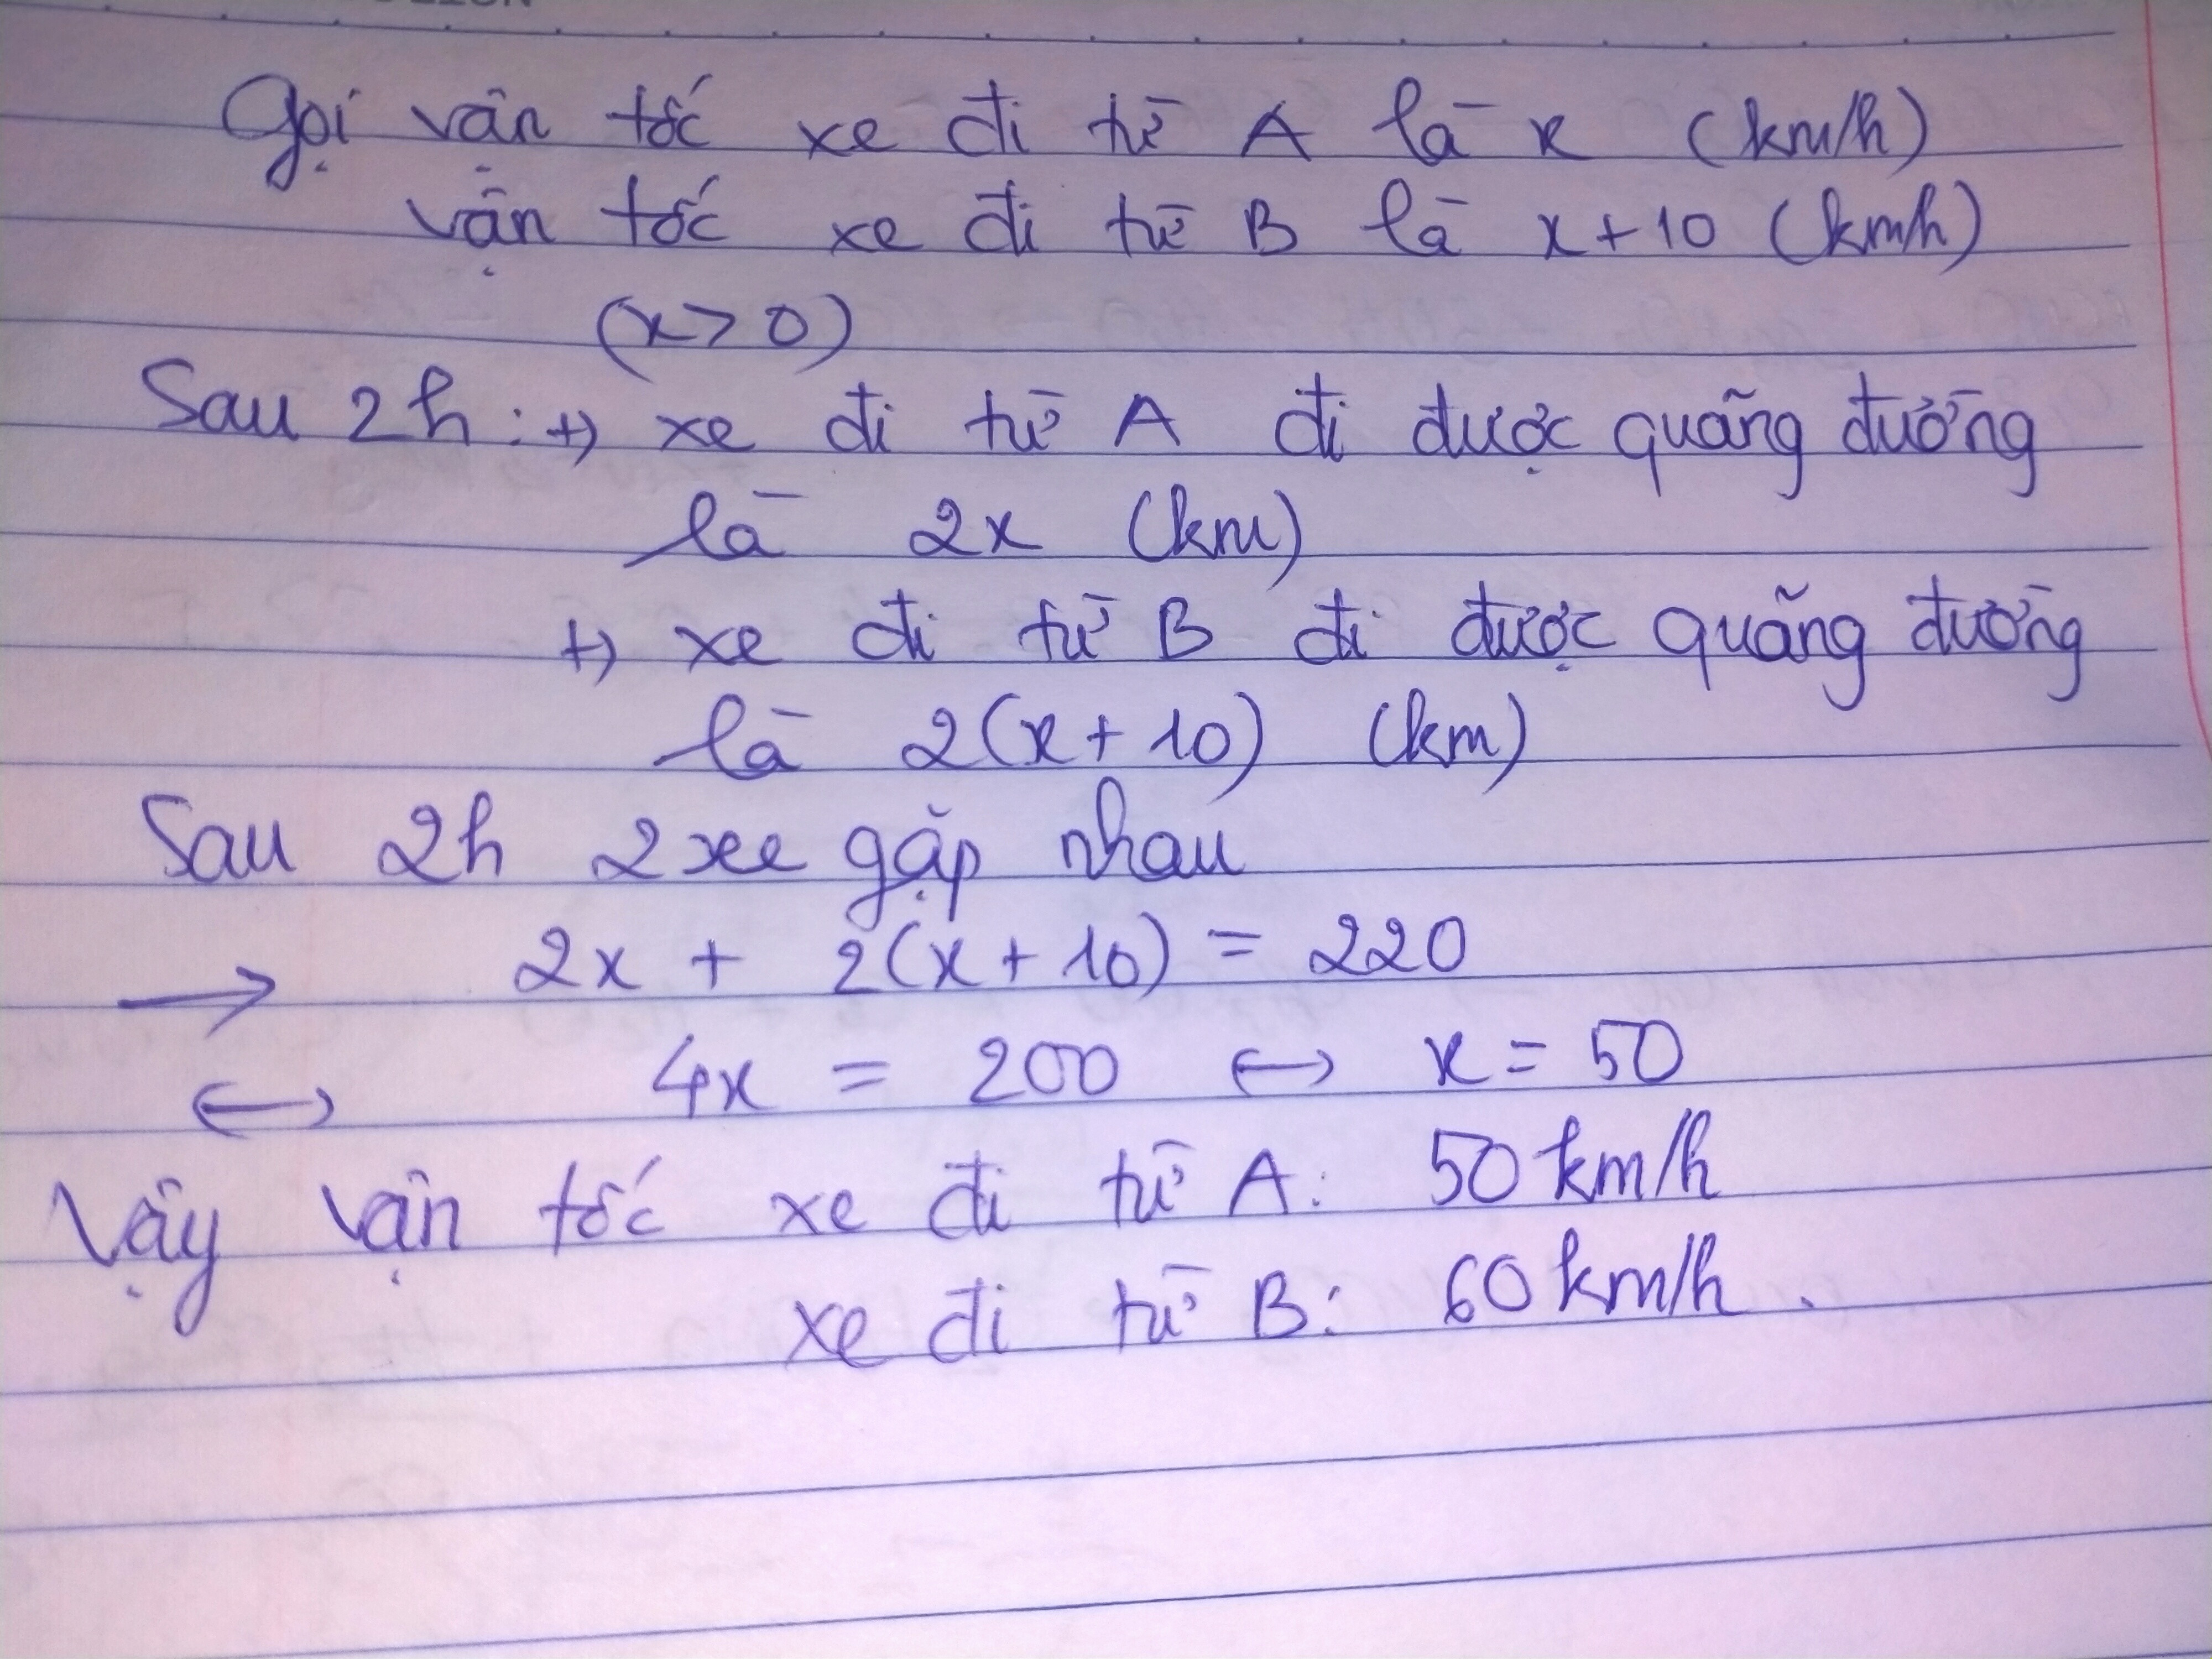 Gọi vận tốc xe đi từ A là x (km/h)
vận tốc xe đi từ B là x + 10 (km/h)
(x > 0)
Sau 2h : +) xe đi từ A đi được quãng đường
là 2x (km)
+) xe đi từ B đi được quãng đường
là 2(x + 10) (km)
Sau 2h 2 xe gặp nhau
→ 2x + 2(x + 10) = 220
↔ 4x = 200 ↔ x = 50
Vậy vận tốc xe đi từ A: 50 km/h
xe đi từ B: 60 km/h.